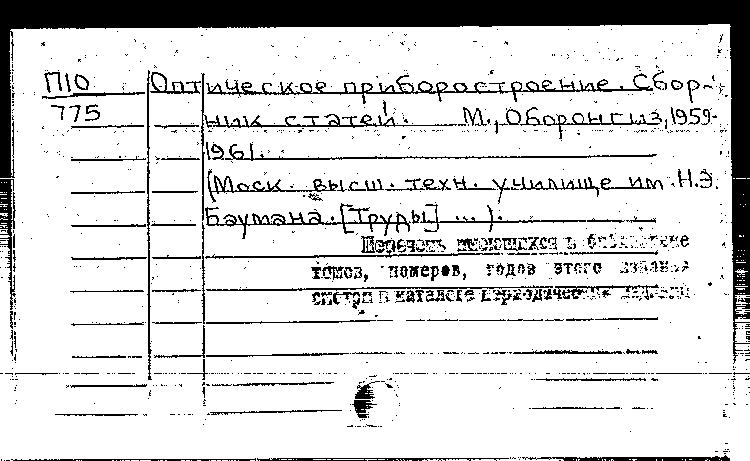 П10 Оптическое приборостроение. Сбор-
775 ник статей. М., Оборонгиз, 1959-
1961.
(Моск. высш. техн. училище им. Н.Э.
Баумана. [Труды] ... ).
Перечень имеющихся в библиотеке
томов, номеров, годов этого издания
смотри в каталоге периодических изданий